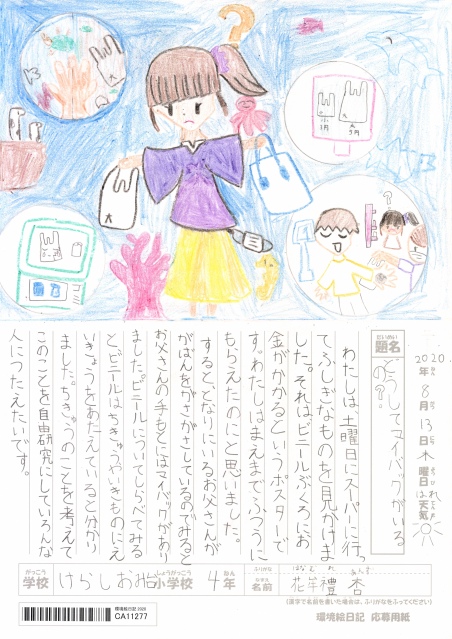 2020年8月13日木曜日 はれ 天気
題名 どうしてマイバックがいるの?
わたしは、土曜日にスーパーに行っ
てふしぎなものを見かけま
した。それはビニールぶくろにお
金がかかるというポスターで
す。わたしはまえまでふつうに
もらえたのにと思いました。
すると、となりにいるお父さんが
かばんをがさがさしているのでみると
お父さんの手もとにはマイバックがあり
ました。ビニールについてしらべてみる
とビニールはちきゅうやいきものにえ
いきょうをあたえていると分かり
ました。ちきゅうのことを考えて
このことを自由研究にしていろんな
人につたえたいです。
学校 小学校 4年 名前 花岸 禮杏
(漢字で名前を書いた場合は、ふりがなをふってください)
環境絵日記2020
CA11277
環境絵日記 応募用紙